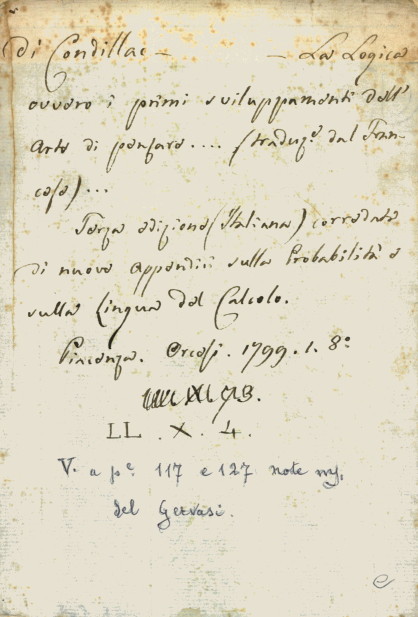 di Condillac — — La Logica
ovvero i primi sviluppamenti dell'
Arte di pensare.... (traduz.e dal Fran-
cese)...
Terza edizione (Italiana) corredata
di nuove Appendici sulla Probabilità e
sulla Lingua del Calcolo.
Piacenza. Orcesi. 1799. 1. 8.o
LL. X. 4.
V. a p.e 117 e 127 note ms.
del Gervasi.